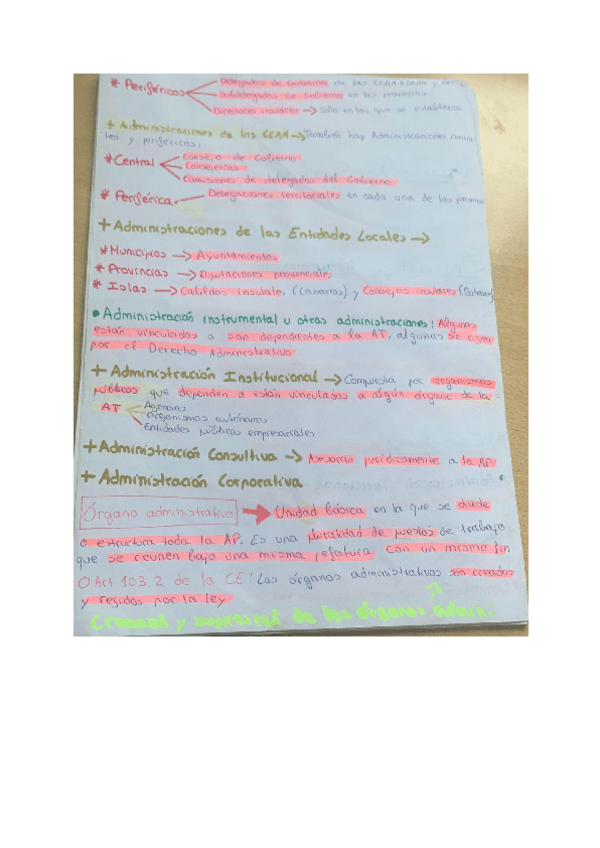 * Periféricos
Delegados de Gobierno en las CCAA
Subdelegados de Gobierno en las provincias
Directores insulares → Sólo en las que se establezca
+ Administraciones de las CCAA → También hay Administraciones centra
les y periféricas:
* Central
Consejo de Gobierno
Consejerías
Comisiones de delegados del Gobierno
* Periférica
Delegaciones territoriales en cada una de las
+ Administraciones de las Entidades Locales →
* Municipios → Ayuntamientos
* Provincias → Diputaciones provinciales
* Islas → Cabildos insulales (Canarias) y Consejos insulares
• Administración instrumental u otras administraciones: Algunas
están vinculadas o son dependientes a la AT, algunas se rigen
por el Derecho Administrativo
+ Administración Institucional → Compuesta por organismos
públicos que dependen o están vinculados a algún órgano de la
AT
Agencias
Organismos autónomos
Entidades públicas empresariales
+ Administración Consultiva → Asesora jurídicamente a la AP
+ Administración Corporativa
Órgano administrativo → Unidad básica en la que se divide
o estructura toda la AP. Es una pluralidad de puestos de trabajo
que se reunen bajo una misma jefatura con un mismo fin
Art 103.2 de la CE: Los órganos administrativos son creados
y regidos por la ley
Creación y supresión de los órganos